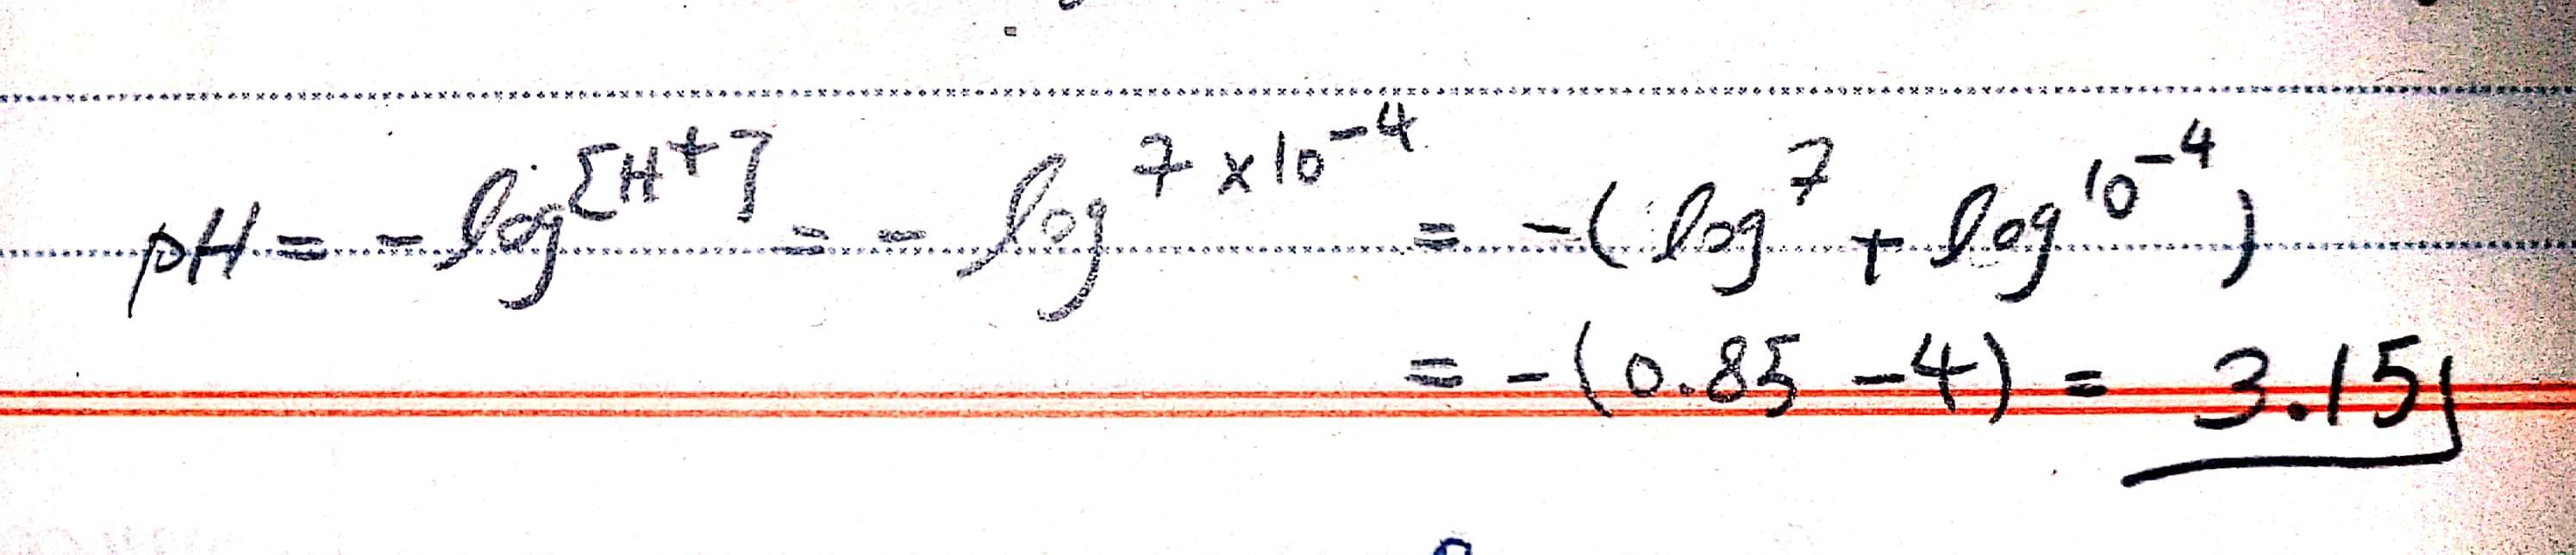 pH = - log[H+] = - log 7 × 10⁻⁴ = -( log 7 + log 10⁻⁴ )
= -(0.85 - 4) = 3.15